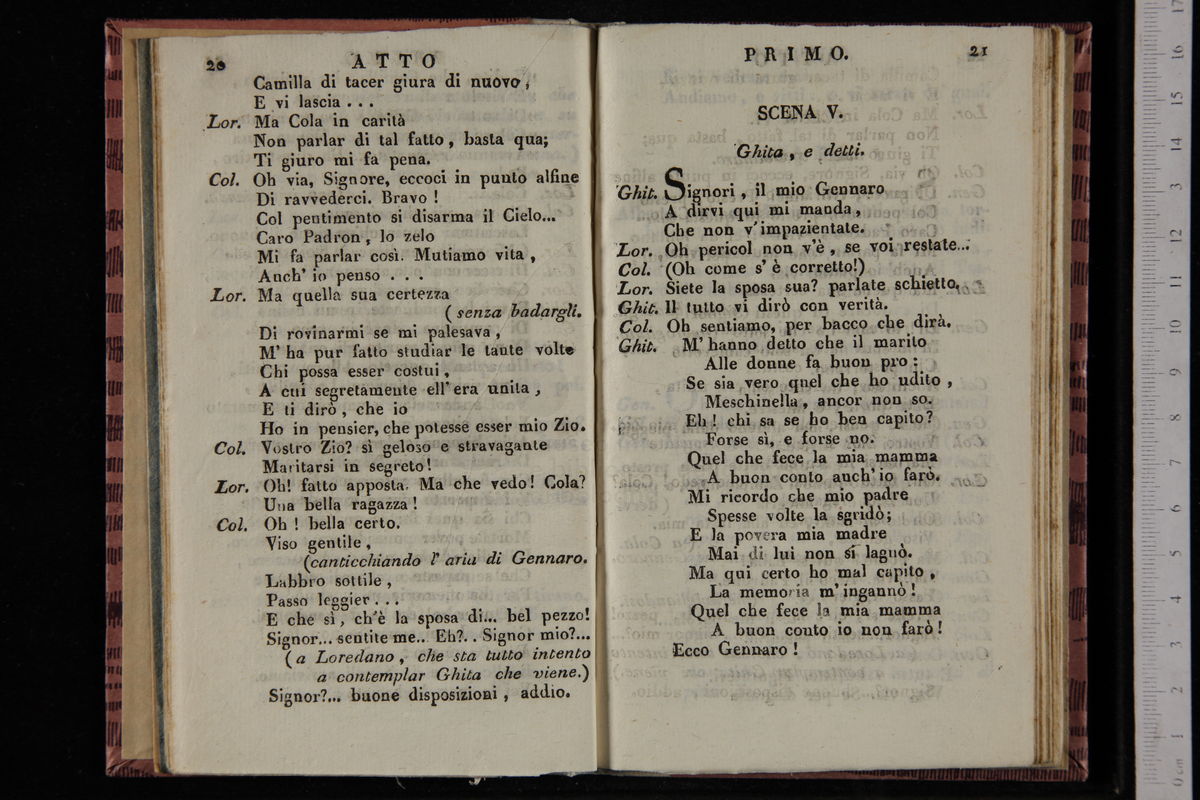 20 ATTO
Camilla di tacer giura di nuovo,
E vi lascia . . .
Lor. Ma Cola in carità
Non parlar di tal fatto, basta qua;
Ti giuro mi fa pena.
Col. Oh via, Signore, eccoci in punto alfine
Di ravvederci. Bravo !
Col pentimento si disarma il Cielo...
Caro Padron, lo zelo
Mi fa parlar così. Mutiamo vita,
Anch' io penso . . .
Lor. Ma quella sua certezza
( senza badargli.
Di rovinarmi se mi palesava,
M' ha pur fatto studiar le tante volte
Chi possa esser costui,
A cui segretamente ell' era unita,
E ti dirò, che io
Ho in pensier, che potesse esser mio Zio.
Col. Vostro Zio? sì geloso e stravagante
Maritarsi in segreto!
Lor. Oh! fatto apposta. Ma che vedo! Cola?
Una bella ragazza!
Col. Oh ! bella certo.
Viso gentile,
(canticchiando l' aria di Gennaro.
Labbro sottile,
Passo leggier . . .
E che sì, ch'è la sposa di... bel pezzo!
Signor... sentite me... Eh?. . Signor mio?...
( a Loredano, che sta tutto intento
a contemplar Ghita che viene.)
Signor?... buone disposizioni, addio.
PRIMO. 21
SCENA V.
Ghita, e detti.
Ghit. Signori, il mio Gennaro
A dirvi qui mi manda,
Che non v' impazientate.
Lor. Oh pericol non v'è, se voi restate...
Col. (Oh come s' è corretto!)
Lor. Siete la sposa sua? parlate schietto.
Ghit. Il tutto vi dirò con verità.
Col. Oh sentiamo, per bacco che dirà.
Ghit. M' hanno detto che il marito
Alle donne fa buon pro :
Se sia vero quel che ho udito,
Meschinella, ancor non so.
Eh ! chi sa se ho ben capito?
Forse sì, e forse no.
Quel che fece la mia mamma
A buon conto anch' io farò.
Mi ricordo che mio padre
Spesse volte la sgridò;
E la povera mia madre
Mai di lui non si lagnò.
Ma qui certo ho mal capito,
La memoria m' ingannò !
Quel che fece la mia mamma
A buon conto io non farò !
Ecco Gennaro !